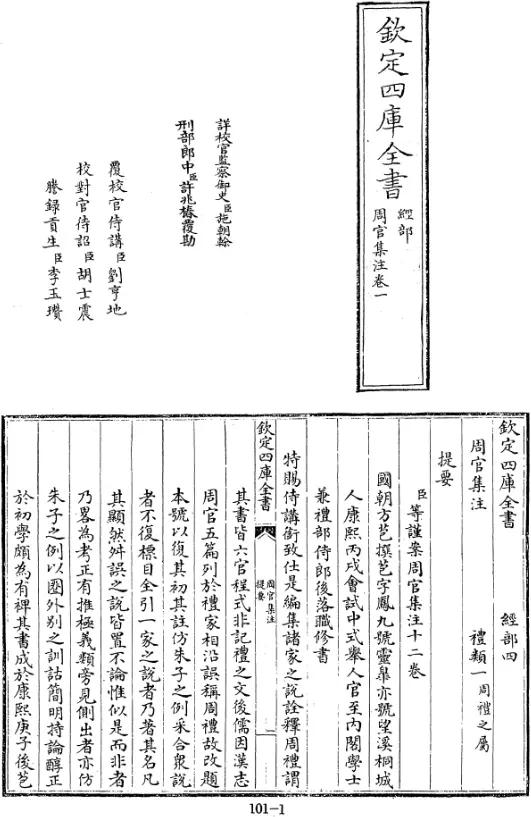 欽定四庫全書
經部
周官集注卷一
詳校官監察御史臣施朝榦
刑部郎中臣許兆椿覆勘
覆校官侍講臣劉亨地
校對官侍詔臣胡士震
謄錄貢生臣李玉瓚
欽定四庫全書
經部四
周官集注
禮類一周禮之屬
提要
臣等謹案周官集注十二卷
國朝方苞撰苞字鳳九號靈臯亦號望溪桐城
人康熙丙戌會試中式舉人官至内閣學士
兼禮部侍郎後落職修書
特賜侍講銜致仕是編集諸家之說詮釋周禮謂
欽定四庫全書
周官集注
提要
一
其書皆六官程式非記禮之文後儒因漢志
周官五篇列於禮家相沿誤稱周禮故改題
本號以復其初其註仿朱子之例采合衆說
者不復標目全引一家之說者乃著其名凡
其顯然舛誤之說皆置不論惟似是而非者
乃畧為考正有推極義類旁見側出者亦仿
朱子之例以圏外别之訓詁簡明持論醇正
於初學頗為有裨其書成於康熙庚子後苞
101-1